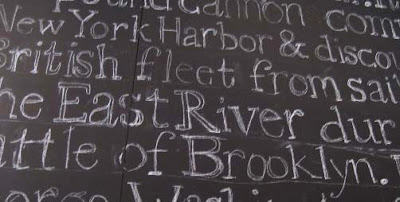 Cannon com
New York Harbor & discou
British fleet from sai
he East River dur
attle of Brooklyn.